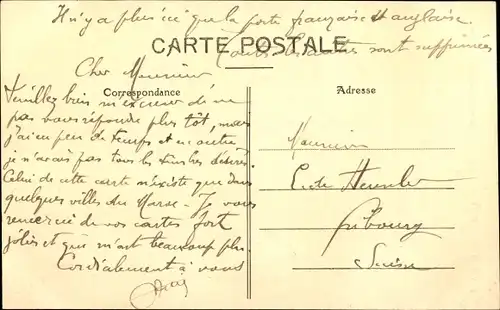 Il n'y a plus ici que la poste française et anglaise.
Toutes les autres sont supprimées
CARTE POSTALE
Correspondance
Adresse
Cher Monsieur
Veuillez bien m'excuser de ne
pas vous répondre plus tôt, mais
j'ai eu peu de temps et en outre
je n'avais pas tous les timbres désirés.
Celui de cette carte n'existe que dans
quelques villes du Maroc - Je vous
remercie de vos cartes fort
jolies et qui m'ont beaucoup plu.
Cordialement à vous
Monsieur
E. de
Fribourg
Suisse